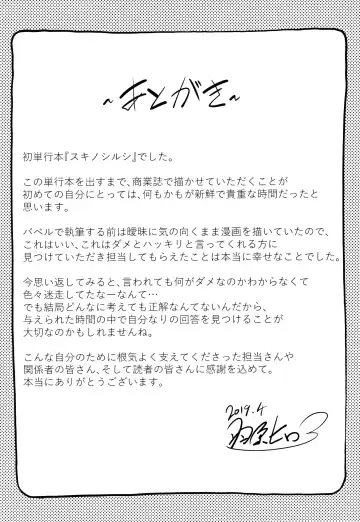 ～あとがき～
初単行本『スキノシルシ』でした。
この単行本を出すまで、商業誌で描かせていただくことが
初めての自分にとっては、何もかもが新鮮で貴重な時間だったと
思います。
バベルで執筆する前は曖昧に気の向くまま漫画を描いていたので、
これはいい、これはダメとハッキリと言ってくれる方に
見つけていただき担当してもらえたことは本当に幸せなことでした。
今思い返してみると、言われても何がダメなのかわからなくて
色々迷走してたなーなんて…
でも結局どんなに考えても正解なんてないんだから、
与えられた時間の中で自分なりの回答を見つけることが
大切なのかもしれませんね。
こんな自分のために根気よく支えてくださった担当さんや
関係者の皆さん、そして読者の皆さんに感謝を込めて。
本当にありがとうございます。
2019.4